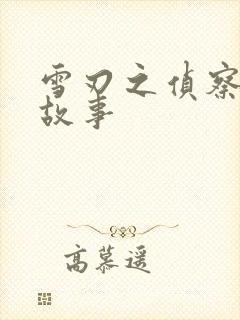 雪刃之偵察
故事
高慕遥